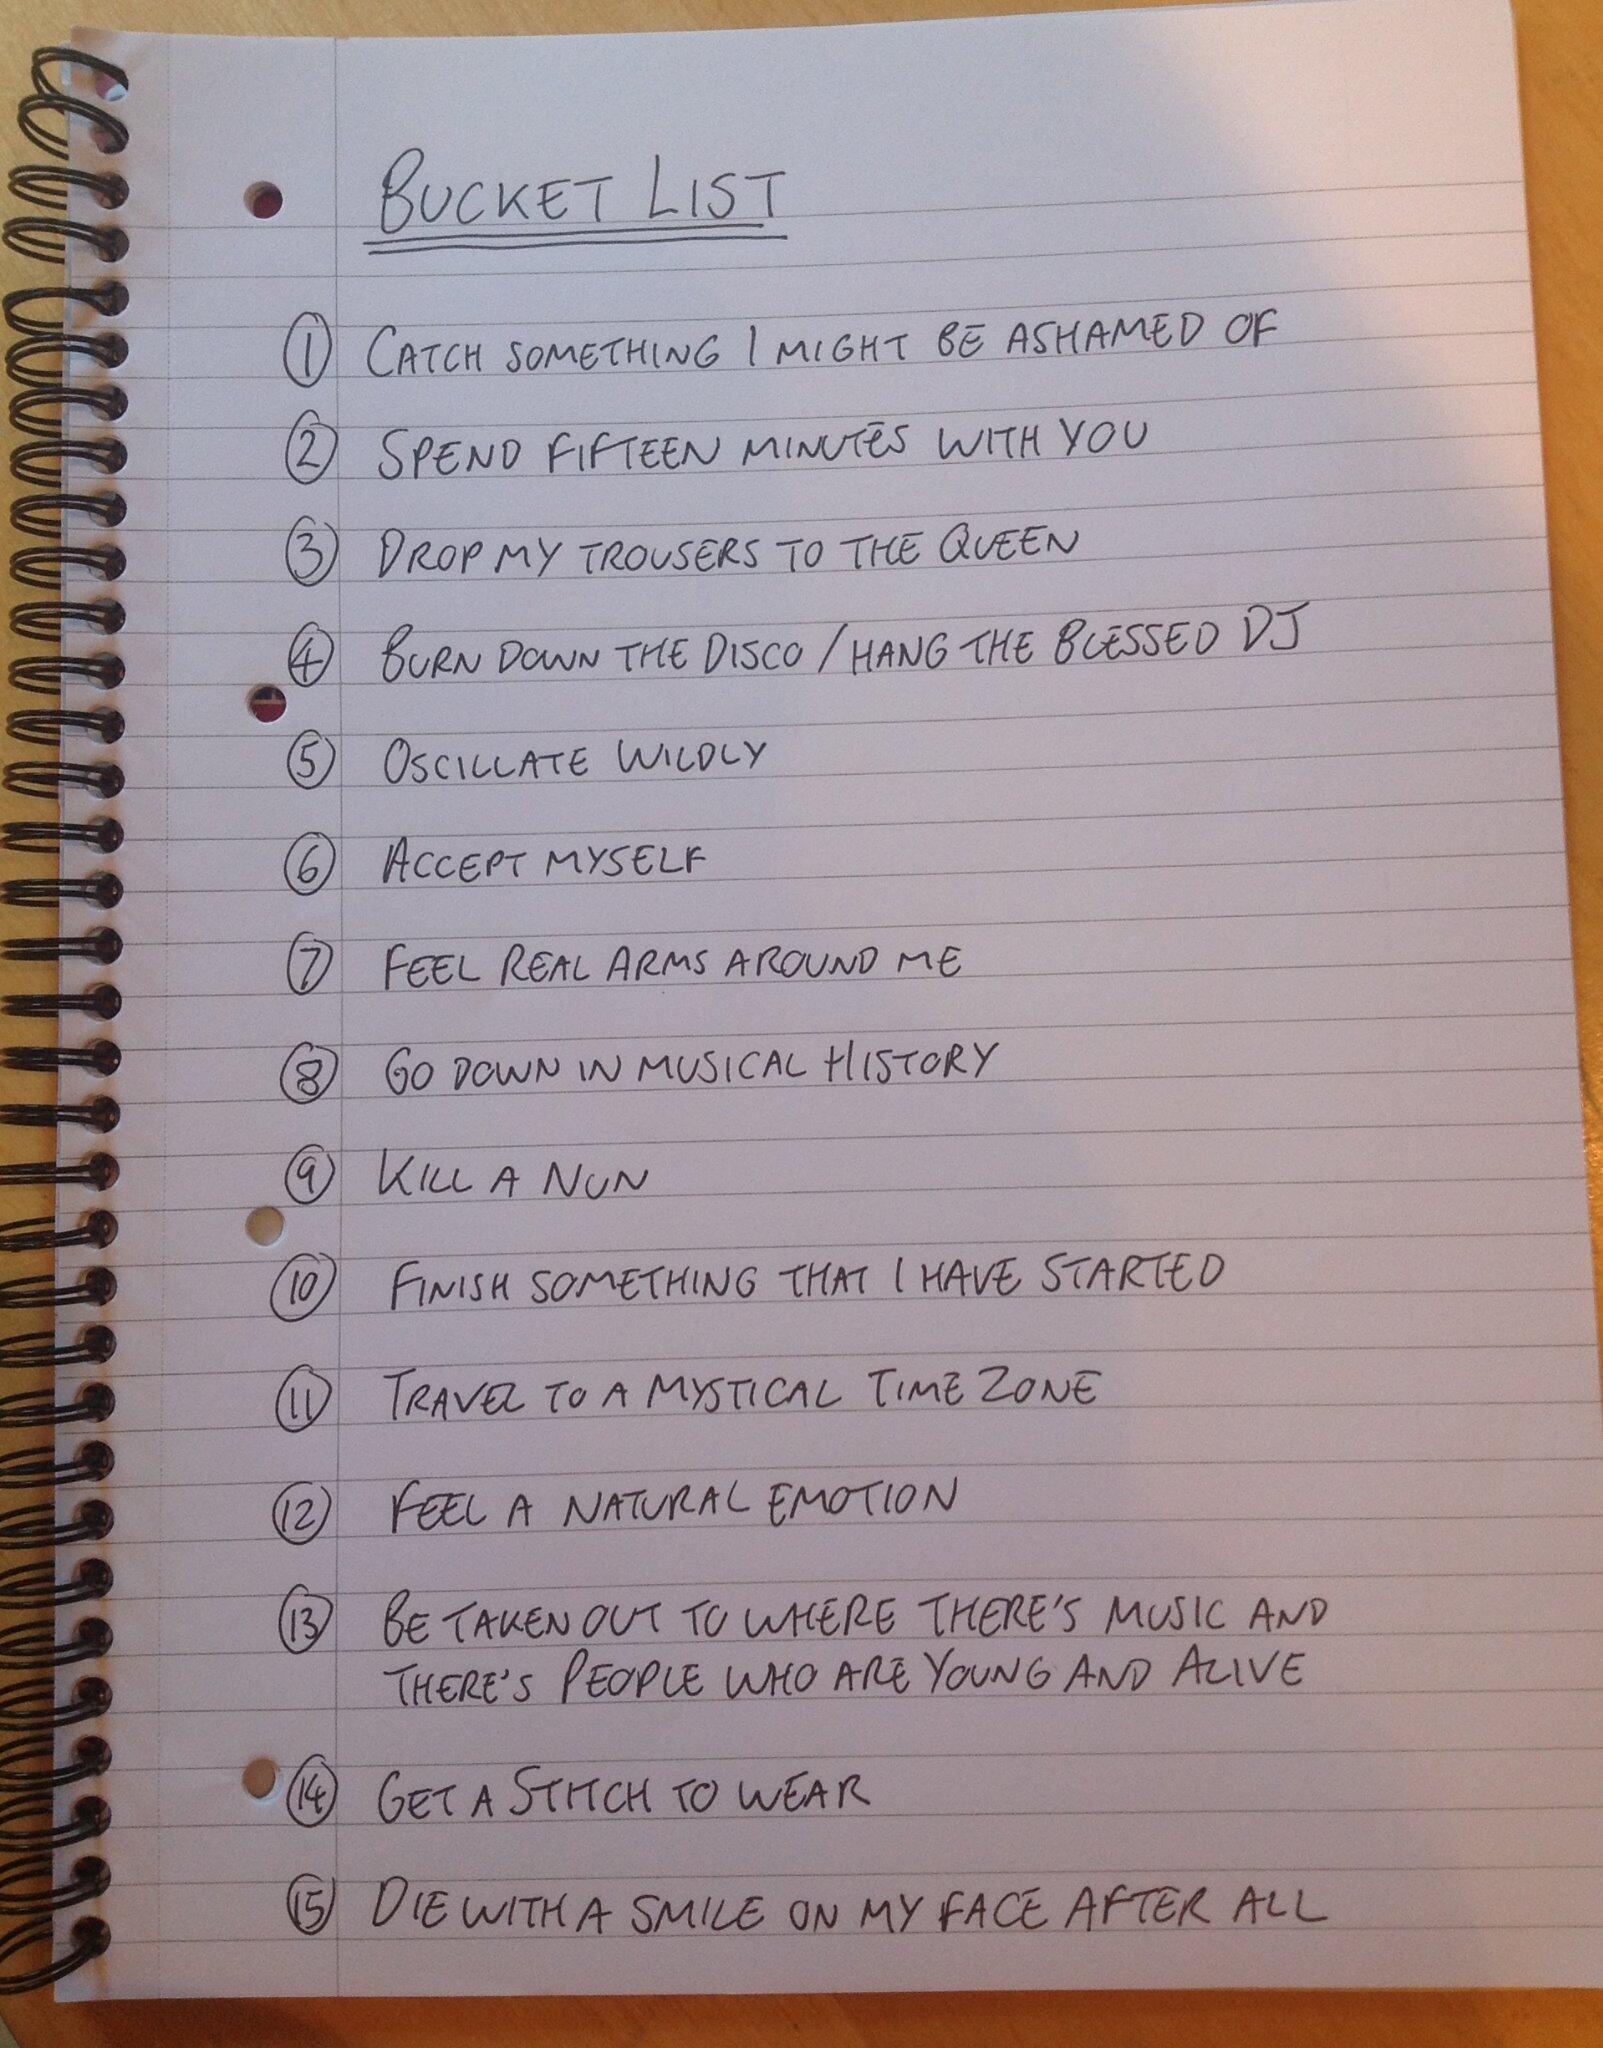 BUCKET LIST
1 CATCH SOMETHING I MIGHT BE ASHAMED OF
2 SPEND FIFTEEN MINUTES WITH YOU
3 DROP MY TROUSERS TO THE QUEEN
4 BURN DOWN THE DISCO / HANG THE BLESSED DJ
5 OSCILLATE WILDLY
6 ACCEPT MYSELF
7 FEEL REAL ARMS AROUND ME
8 GO DOWN IN MUSICAL HISTORY
9 KILL A NUN
10 FINISH SOMETHING THAT I HAVE STARTED
11 TRAVEL TO A MYSTICAL TIME ZONE
12 FEEL A NATURAL EMOTION
13 BE TAKEN OUT TO WHERE THERE'S MUSIC AND
THERE'S PEOPLE WHO ARE YOUNG AND ALIVE
14 GET A STITCH TO WEAR
15 DIE WITH A SMILE ON MY FACE AFTER ALL